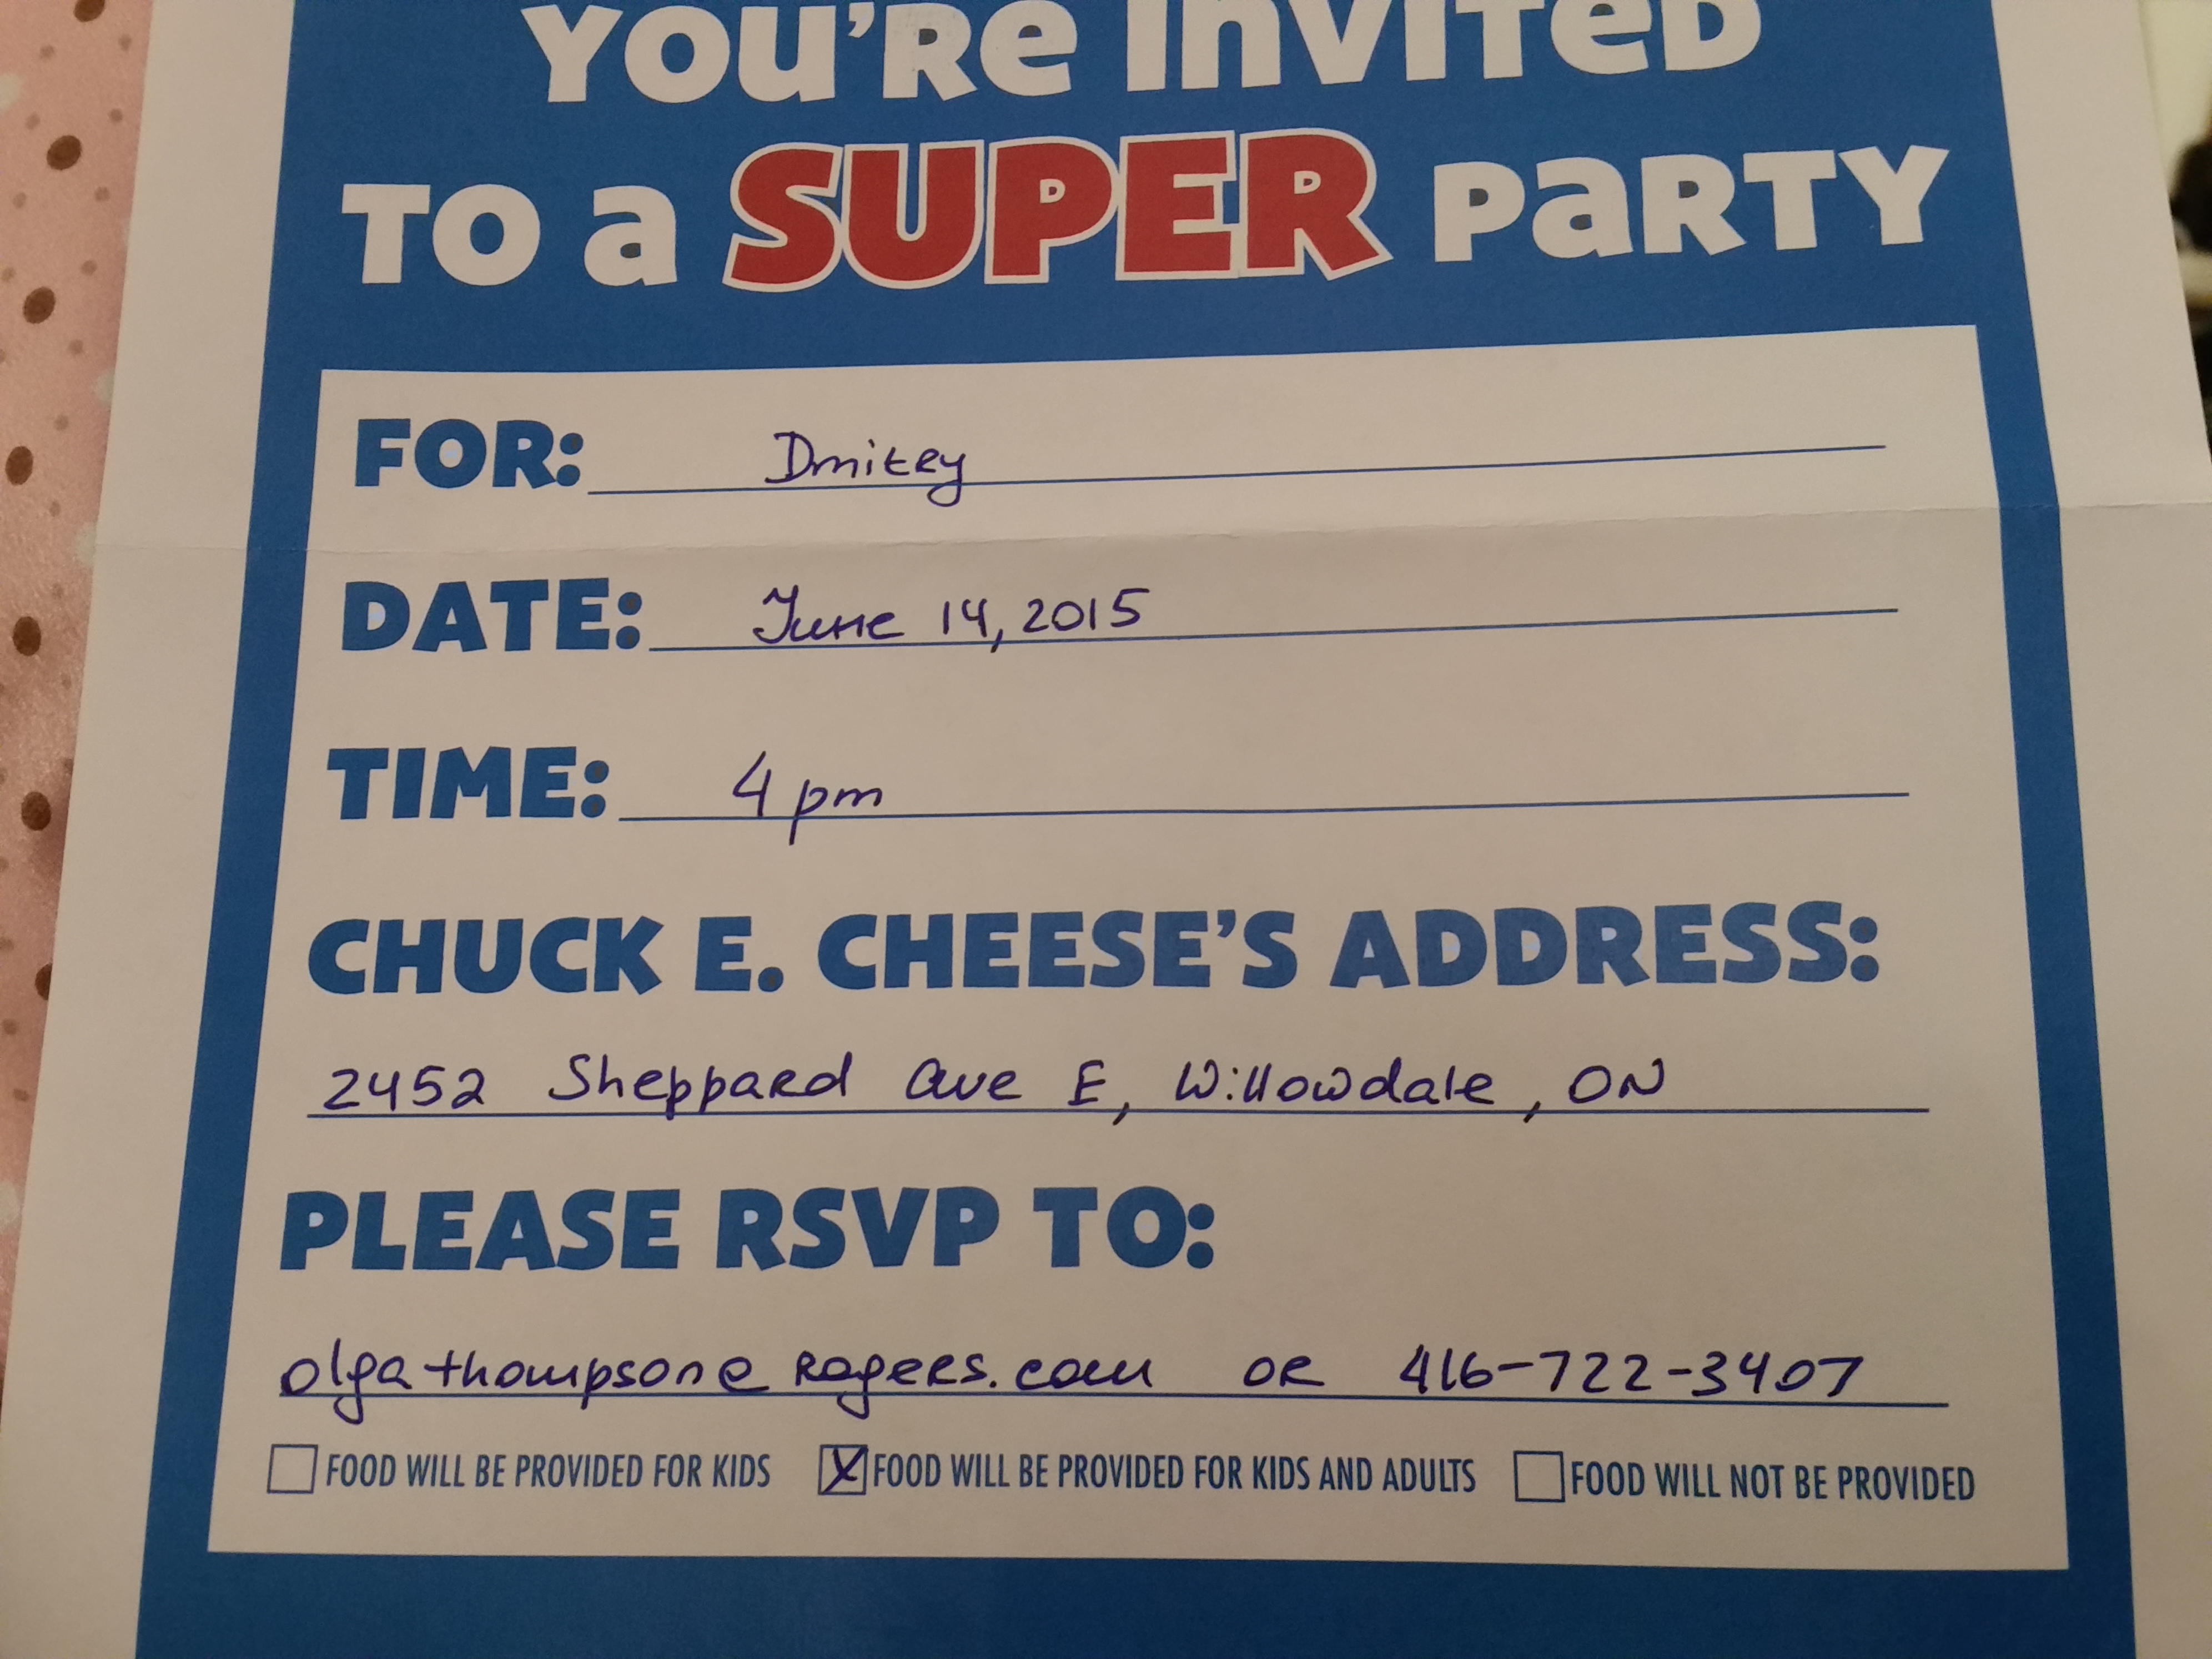 YOU'RE INVITED
TO a SUPER PARTY
FOR: Dmitry
DATE: June 14, 2015
TIME: 4 pm
CHUCK E. CHEESE'S ADDRESS:
2452 Sheppard Ave E, Willowdale, ON
PLEASE RSVP TO:
olgathompson@rogers.com or 416-722-3407
FOOD WILL BE PROVIDED FOR KIDS X FOOD WILL BE PROVIDED FOR KIDS AND ADULTS FOOD WILL NOT BE PROVIDED